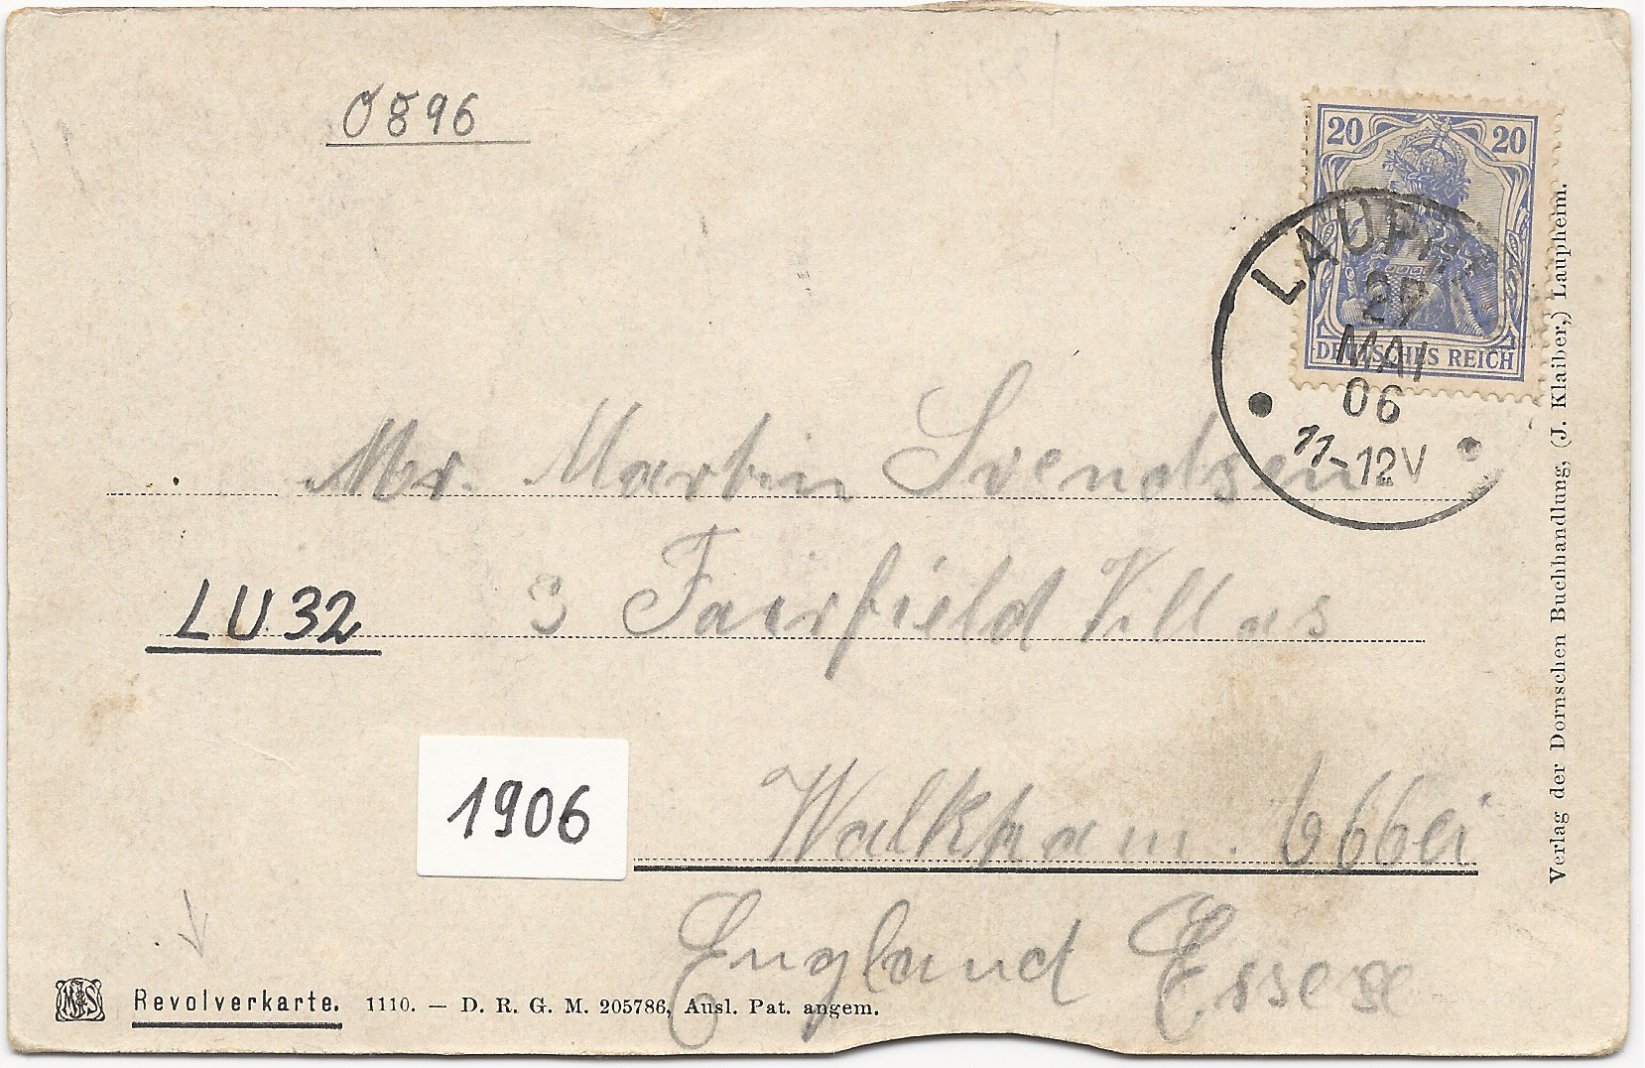 0896
20 20
DEUTSCHES REICH
LAUPH
27
MAI
06
11-12V
Mr. Martin Svendsen
LU32
3 Fairfield Villas
1906
Walkham
England Essex
Revolverkarte. 1110. — D. R. G. M. 205786, Ausl. Pat. angem.
Verlag der Dornschen Buchhandlung, (J. Klaiber,) Laupheim.